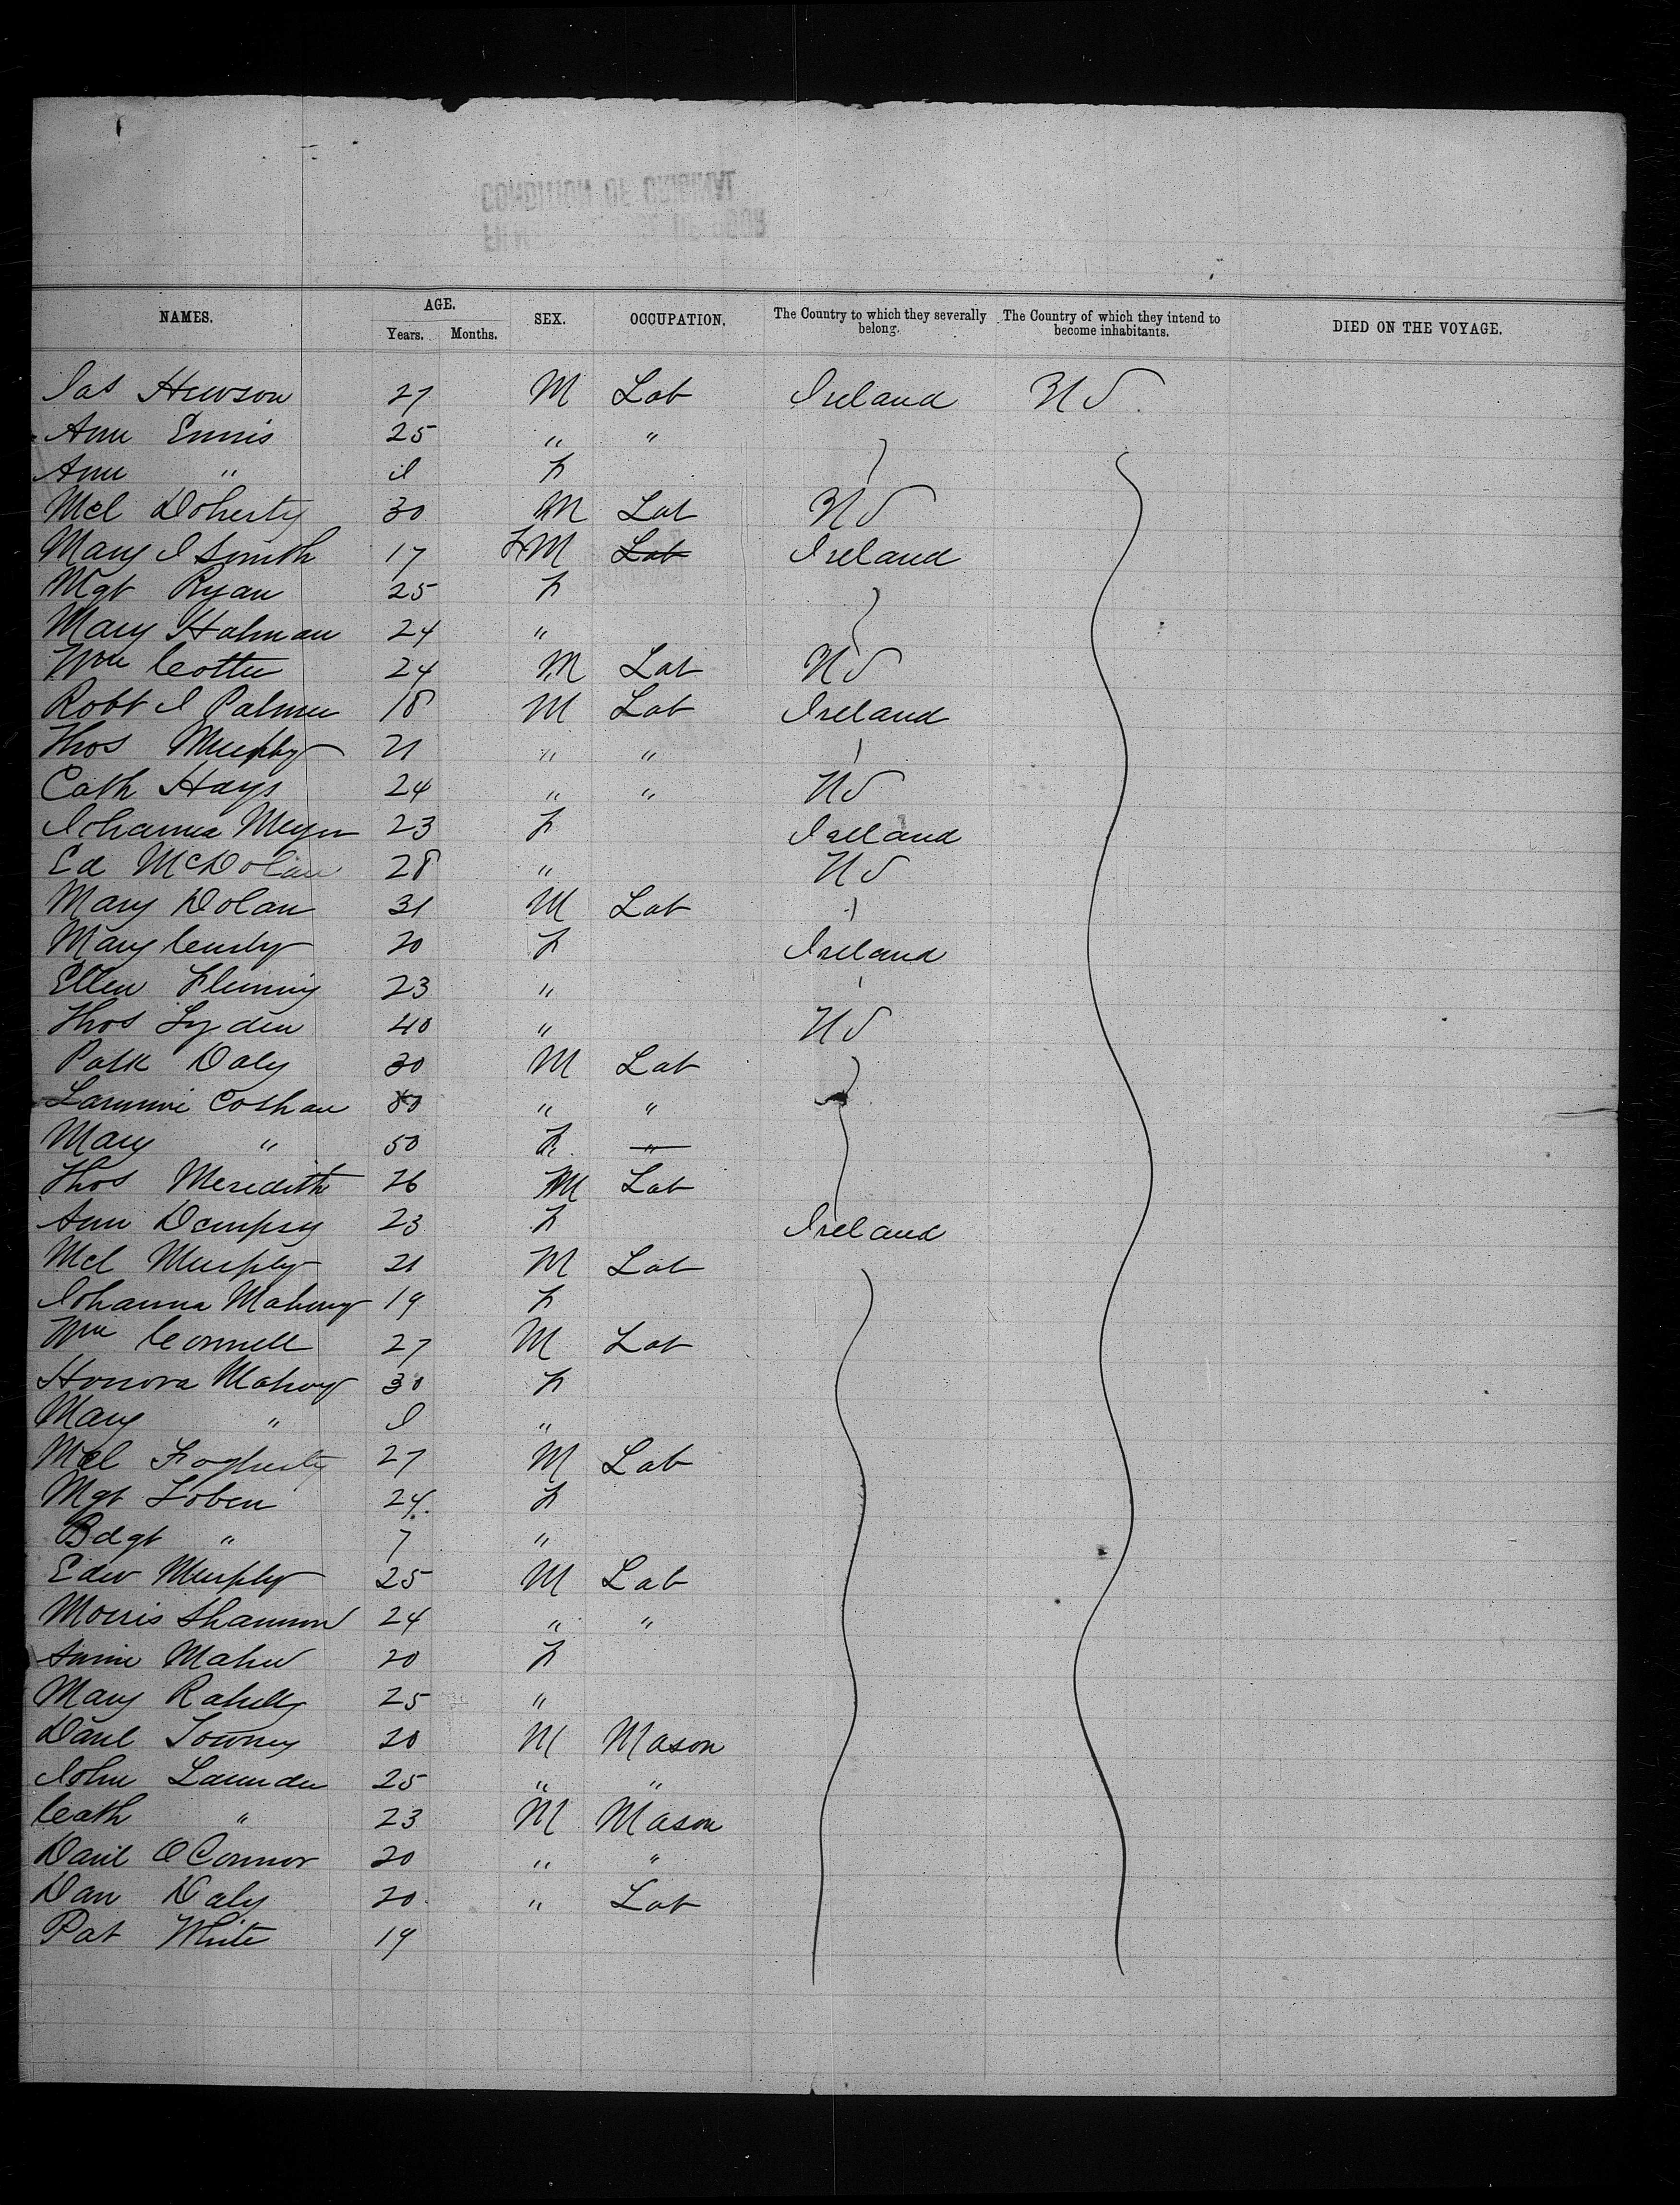 CONDITION OF ORIGINAL
NAMES. AGE. SEX. OCCUPATION. The Country to which they severally belong. The Country of which they intend to become inhabitants. DIED ON THE VOYAGE.
Years. Months.
Jas Hewson 27 M Lab Ireland US
Ann Ennis 25 " "
Ann " I F
Mcl Doherty 30 M Lab US
Mary J Smith 17 F M Lab Ireland
Mgt Ryan 25 F
Mary Halman 24 "
Wm Cotter 24 M Lab US
Robt J Palmer 18 M Lab Ireland
Thos Murphy 21 " "
Cath Hays 24 " " US
Johanna 23 F Ireland
Ed McDolan 28 " US
Mary Dolan 31 M Lab
Mary 20 F Ireland
Ellen Fleming 23 "
Thos Lyden 40 " US
Patk Daly 30 M Lab
" "
Mary " 50 F "
Thos Meredith 26 M Lab
Ann Dempsy 23 F Ireland
Mcl Murphy 21 M Lab
Johanna Mahony 19 F
Wm Connell 27 M Lab
Honora Mahony 30 F
Mary " I "
Mcl 27 M Lab
Mgt Toben 24 F
Bdgt " 7 "
Edw Murphy 25 M Lab
Morris Shannon 24 " "
Annie Maher 20 F
Mary 25 "
Danl 20 M Mason
John 25 " "
Cath " 23 M Mason
Danl O'Connor 20 " "
Dan Daly 20 " Lab
Pat White 19